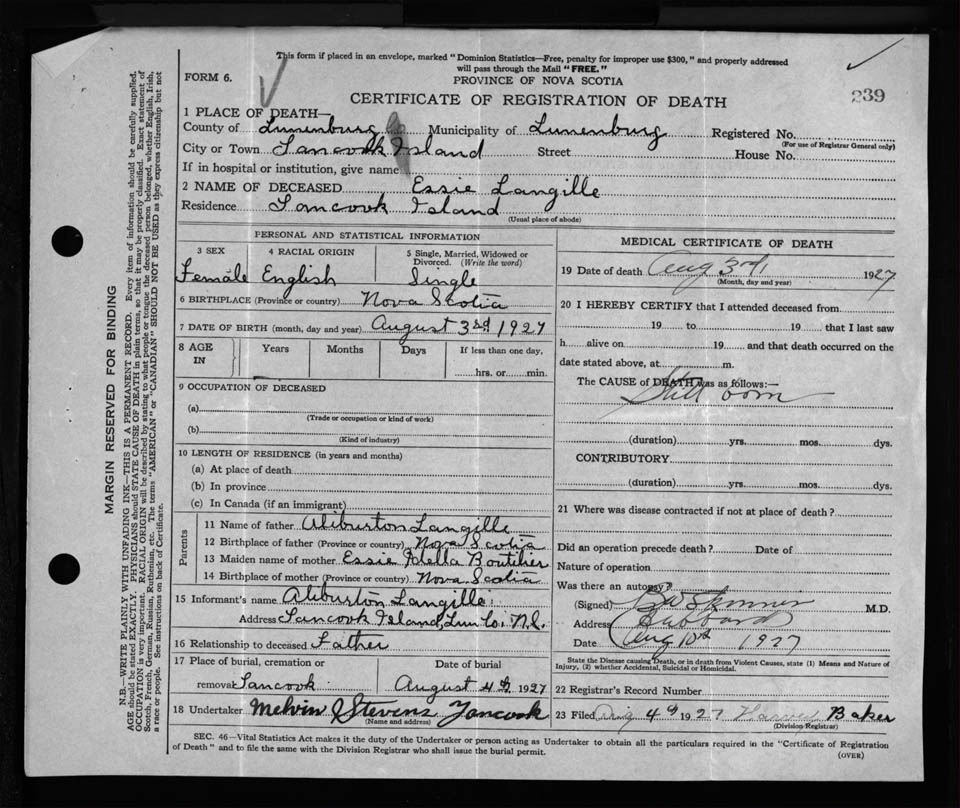 This form if placed in an envelope, marked "Dominion Statistics—Free, penalty for improper use $300," and properly addressed
will pass through the Mail "FREE."
FORM 6.
PROVINCE OF NOVA SCOTIA
CERTIFICATE OF REGISTRATION OF DEATH
239
1 PLACE OF DEATH—
County of Lunenburg Municipality of Lunenburg Registered No.
(For use of Registrar General only)
City or Town Tancook Island Street House No.
If in hospital or institution, give name
2 NAME OF DECEASED Essie Langille
Residence Tancook Island
(Usual place of abode)
PERSONAL AND STATISTICAL INFORMATION
3 SEX 4 RACIAL ORIGIN 5 Single, Married, Widowed or
Divorced. (Write the word)
Female English Single
6 BIRTHPLACE (Province or country) Nova Scotia
7 DATE OF BIRTH (month, day and year) August 3rd 1927
8 AGE IN Years Months Days If less than one day,
hrs. or min.
9 OCCUPATION OF DECEASED
(a)
(Trade or occupation or kind of work)
(b)
(Kind of industry)
10 LENGTH OF RESIDENCE (in years and months)
(a) At place of death
(b) In province
(c) In Canada (if an immigrant)
Parents
11 Name of father Aliburton Langille
12 Birthplace of father (Province or country) Nova Scotia
13 Maiden name of mother Essie Stella Boutilier
14 Birthplace of mother (Province or country) Nova Scotia
15 Informant's name Aliburton Langille
Address Tancook Island, Lun Co. N.S.
16 Relationship to deceased Father
17 Place of burial, cremation or Date of burial
removal Tancook August 4th 1927
18 Undertaker Melvin Stevens Tancook
(Name and address)
MEDICAL CERTIFICATE OF DEATH
19 Date of death Aug 3rd 1927
(Month, day and year)
20 I HEREBY CERTIFY that I attended deceased from
19 to 19 that I last saw
h alive on 19 and that death occurred on the
date stated above, at m.
The CAUSE of DEATH was as follows:—
Still born
(duration) yrs. mos. dys.
CONTRIBUTORY
(duration) yrs. mos. dys.
21 Where was disease contracted if not at place of death?
Did an operation precede death? Date of
Nature of operation
Was there an autopsy?
(Signed) Skinner M.D.
Address Hubbards
Date Aug 10th 1927
State the Disease causing Death, or in death from Violent Causes, state (1) Means and Nature of
Injury, (2) whether Accidental, Suicidal or Homicidal.
22 Registrar's Record Number
23 Filed Aug 4th 1927 Baker
(Division Registrar)
SEC. 46—Vital Statistics Act makes it the duty of the Undertaker or person acting as Undertaker to obtain all the particulars required in the "Certificate of Registration
of Death" and to file the same with the Division Registrar who shall issue the burial permit.
(OVER)
MARGIN RESERVED FOR BINDING
N.B.—WRITE PLAINLY WITH UNFADING INK—THIS IS A PERMANENT RECORD. Every item of information should be carefully supplied.
AGE should be stated EXACTLY. PHYSICIANS should STATE CAUSE OF DEATH in plain terms, so that it may be properly classified. Exact statement of
OCCUPATION is very important. RACIAL ORIGIN will be described by stating to what people or tongue the deceased person belonged, whether English, Irish,
Scotch, French, German, Russian, Ruthenian, etc. The terms "AMERICAN" or "CANADIAN" SHOULD NOT BE USED as they express citizenship but not
a race or people. See instructions on back of Certificate.